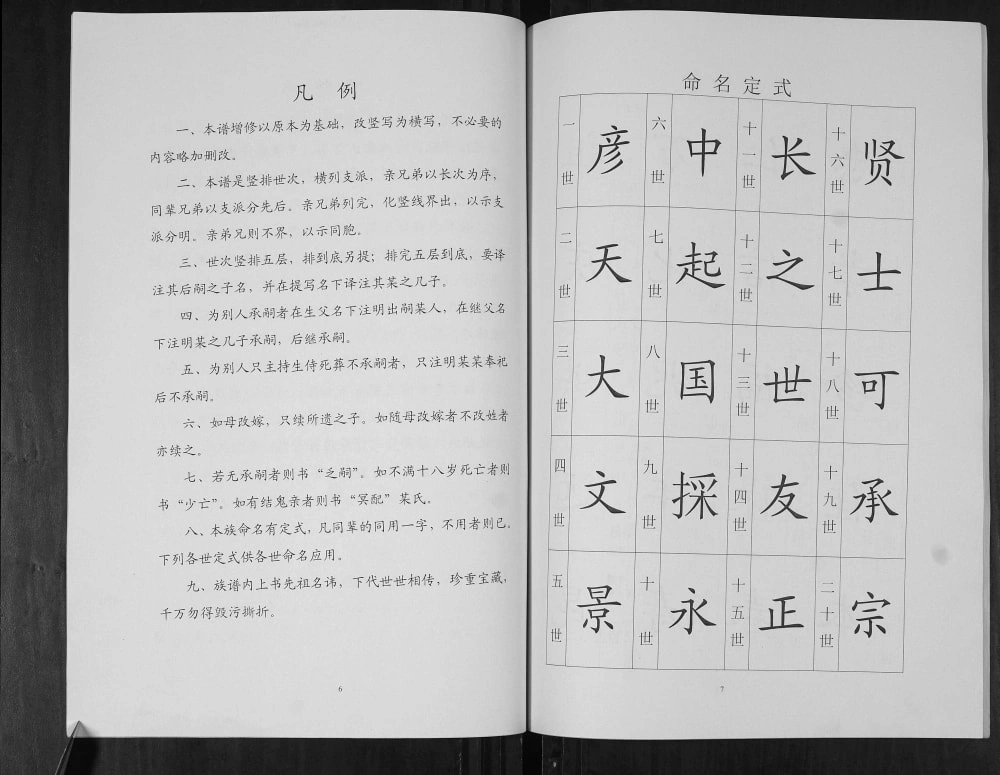 凡 例
一、本谱增修以原本为基础，改竖写为横写，不必要的
内容略加删改。
二、本谱是竖排世次，横列支派，亲兄弟以长次为序，
同辈兄弟以支派分先后。亲兄弟列完，化竖线界出，以示支
派分明。亲弟兄则不界，以示同胞。
三、世次竖排五层，排到底另提；排完五层到底，要译
注其后嗣之子名，并在提写名下译注其某之几子。
四、为别人承嗣者在生父名下注明出嗣某人，在继父名
下注明某之几子承嗣，后继承嗣。
五、为别人只主持生侍死葬不承嗣者，只注明某某奉祀
后不承嗣。
六、如母改嫁，只续所遗之子。如随母改嫁者不改姓者
亦续之。
七、若无承嗣者则书“乏嗣”。如不满十八岁死亡者则
书“少亡”。如有结鬼亲者则书“冥配”某氏。
八、本族命名有定式，凡同辈的同用一字，不用者则已，
下列各世定式供各世命名应用。
九、族谱内上书先祖名讳，下代世世相传，珍重宝藏，
千万勿得毁污撕折。
6
命名定式
一世 彦 六世 中 十一世 长 十六世 贤
二世 天 七世 起 十二世 之 十七世 士
三世 大 八世 国 十三世 世 十八世 可
四世 文 九世 採 十四世 友 十九世 承
五世 景 十世 永 十五世 正 二十世 宗
7